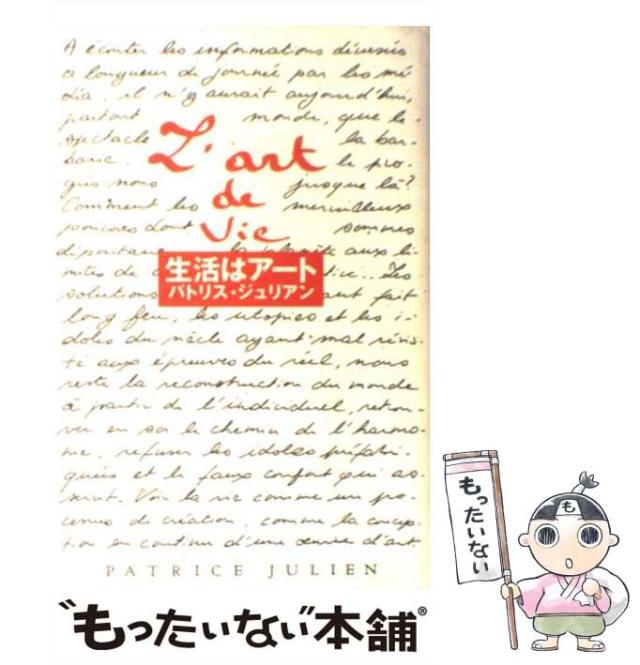 A écouter les informations déversées
à longueur de journée par les mé
dia, il n'y aurait aujourd'hui,
partout monde, que le
spectacle la bar-
barie. le pro-
grès nous jusque là?
Comment les merveilleux
pouvoirs dont sommes
L'art
de
Vie
生活はアート
パトリス・ジュリアン
la planète aux li-
mites de Les
solutions ont fait
long feu, les utopies et les i-
doles du siècle ayant mal résis-
té aux épreuves du réel, nous
reste la reconstruction du monde
à partir de l'individuel, retrou-
ver en soi le chemin de l'harmo-
nie, refuser les idoles préfabri-
quées et le faux confort qui as-
servit. Voir la vie comme un pro-
cessus de création, comme la concep-
tion en continu d'une œuvre d'art.
PATRICE JULIEN
"もったいない"本舗®
もったいない
も